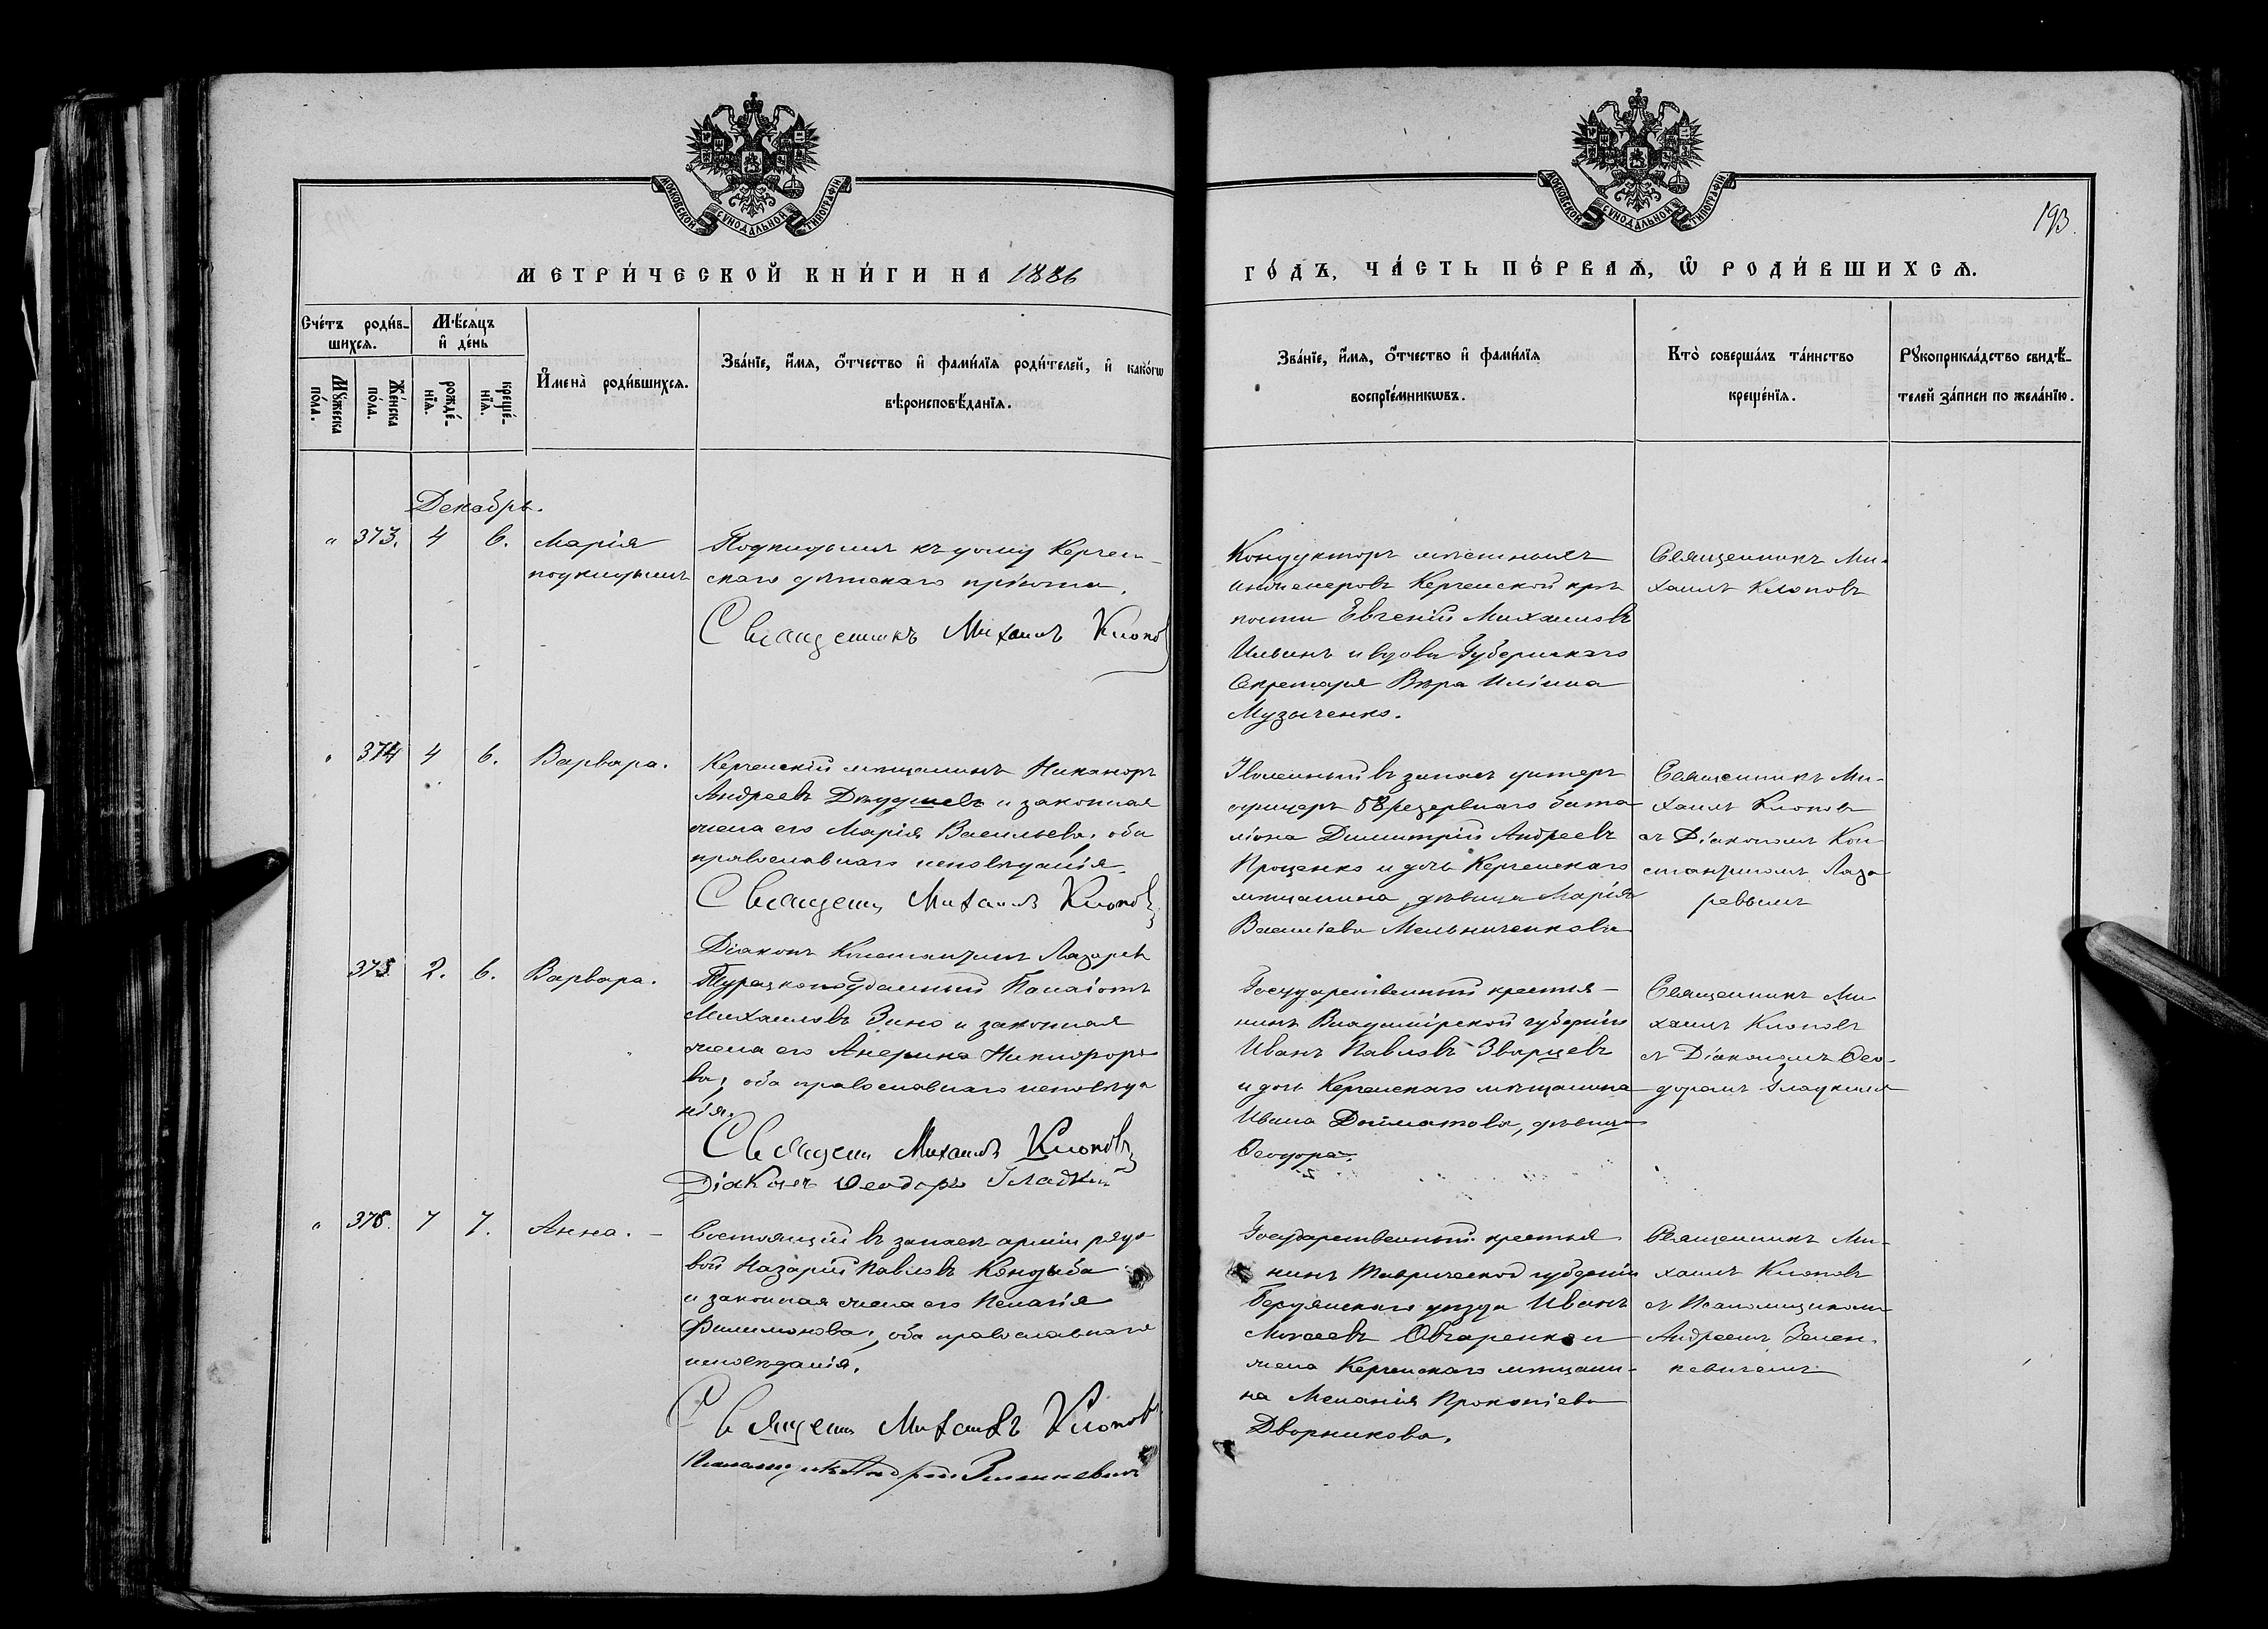 МОСКОВСКОЙ СУНОДАЛЬНОЙ ТИПОГРАФІИ
МЕТРИ́ЧЕСКОЙ КНИ́ГИ НА 1886
Сче́тъ роди́в-
шихсѧ.
Мꙋ́жеска по́ла.
Же́нска по́ла.
Мѣ́сяцъ
и҆ де́нь
рожде́-
нїѧ.
креще́-
нїѧ.
И҆мена̀ роди́вшихсѧ.
Зва́нїе, и҆́мѧ, ѻ҆́тчество и҆ фами́лїѧ роди́телей, и҆ како́гѡ
вѣроисповѣ́данїѧ.
Декабрь.
" 373. 4 6. Марія
подкидышъ
Подкидышъ къ дому Керчен-
скаго дѣтскаго пріюта.
Священникъ Михаилъ Клопов
" 374 4 6. Варвара.
Керченскій мѣщанинъ Никаноръ
Андреевъ и законная
жена его Марія Васильева, оба
православнаго исповѣданія.
Священ Михаилъ Клоповъ
Діаконъ Константинъ Лазаревъ
375 2. 6. Варвара.
Турецкоподданный Панаіотъ
Михаиловъ Зино и законная
жена его Никифоро-
ва, оба православнаго исповѣда
нія.
Священ Михаилъ Клоповъ
Діаконъ Ѳеодоръ Гладкій
" 376. 7 7. Анна.
Состоящій въ запасѣ арміи рядо-
вой Назарій Павловъ Кендыба
и законная жена его Пелагія
Филимонова, оба православнаго
исповѣданія.
Священ Михаилъ Клоповъ
Псаломщикъ Андрей Зиленкевичъ
МОСКОВСКОЙ СУНОДАЛЬНОЙ ТИПОГРАФІИ
193.
ГО́ДЪ, ЧА́СТЬ ПЕ́РВАѦ, Ѡ҆ РОДИ́ВШИХСѦ.
Зва́нїе, и҆́мѧ, ѻ҆́тчество и҆ фами́лїѧ
воспрїе́мникѡвъ.
Кто̀ соверша́лъ та́инство
креще́нїѧ.
Рꙋкоприкла́дство свидѣ́-
телей за́писи по жела́нїю.
Кондукторъ военныхъ
инженеровъ Керченской крѣ
пости Евгеній Михаиловъ
Ильинъ и вдова Губернскаго
Секретаря Вѣра Ильина
Музыченко.
Священникъ Ми-
хаилъ Клоповъ
Уволенный въ запасъ унтеръ
офицеръ 58 резервнаго бата
ліона Димитрій Андреевъ
Проценко и дочь Керченскаго
мѣщанина, дѣвица Марія
Василіева Мельниченкова
Священникъ Ми-
хаилъ Клоповъ
съ Діакономъ Кон
стантиномъ Лаза
ревымъ
Государственный крестья-
нинъ Владимірской губерніи
Иванъ Павловъ Зварцевъ
и дочь Керченскаго мѣщанина
Ивана дѣвица
Ѳеодора.
Священникъ Ми
хаилъ Клоповъ
съ Діакономъ Ѳео-
доромъ Гладкимъ
Государственный крестья
нинъ Таврической губерніи
Бердянскаго уѣзда Иванъ
Моисеевъ Овчаренко и
жена Керченскаго мѣщани-
на Меланія Прокопіева
Дворникова.
Священникъ Ми-
хаилъ Клоповъ
съ Псаломщикомъ
Андреемъ Зилен-
кевичемъ